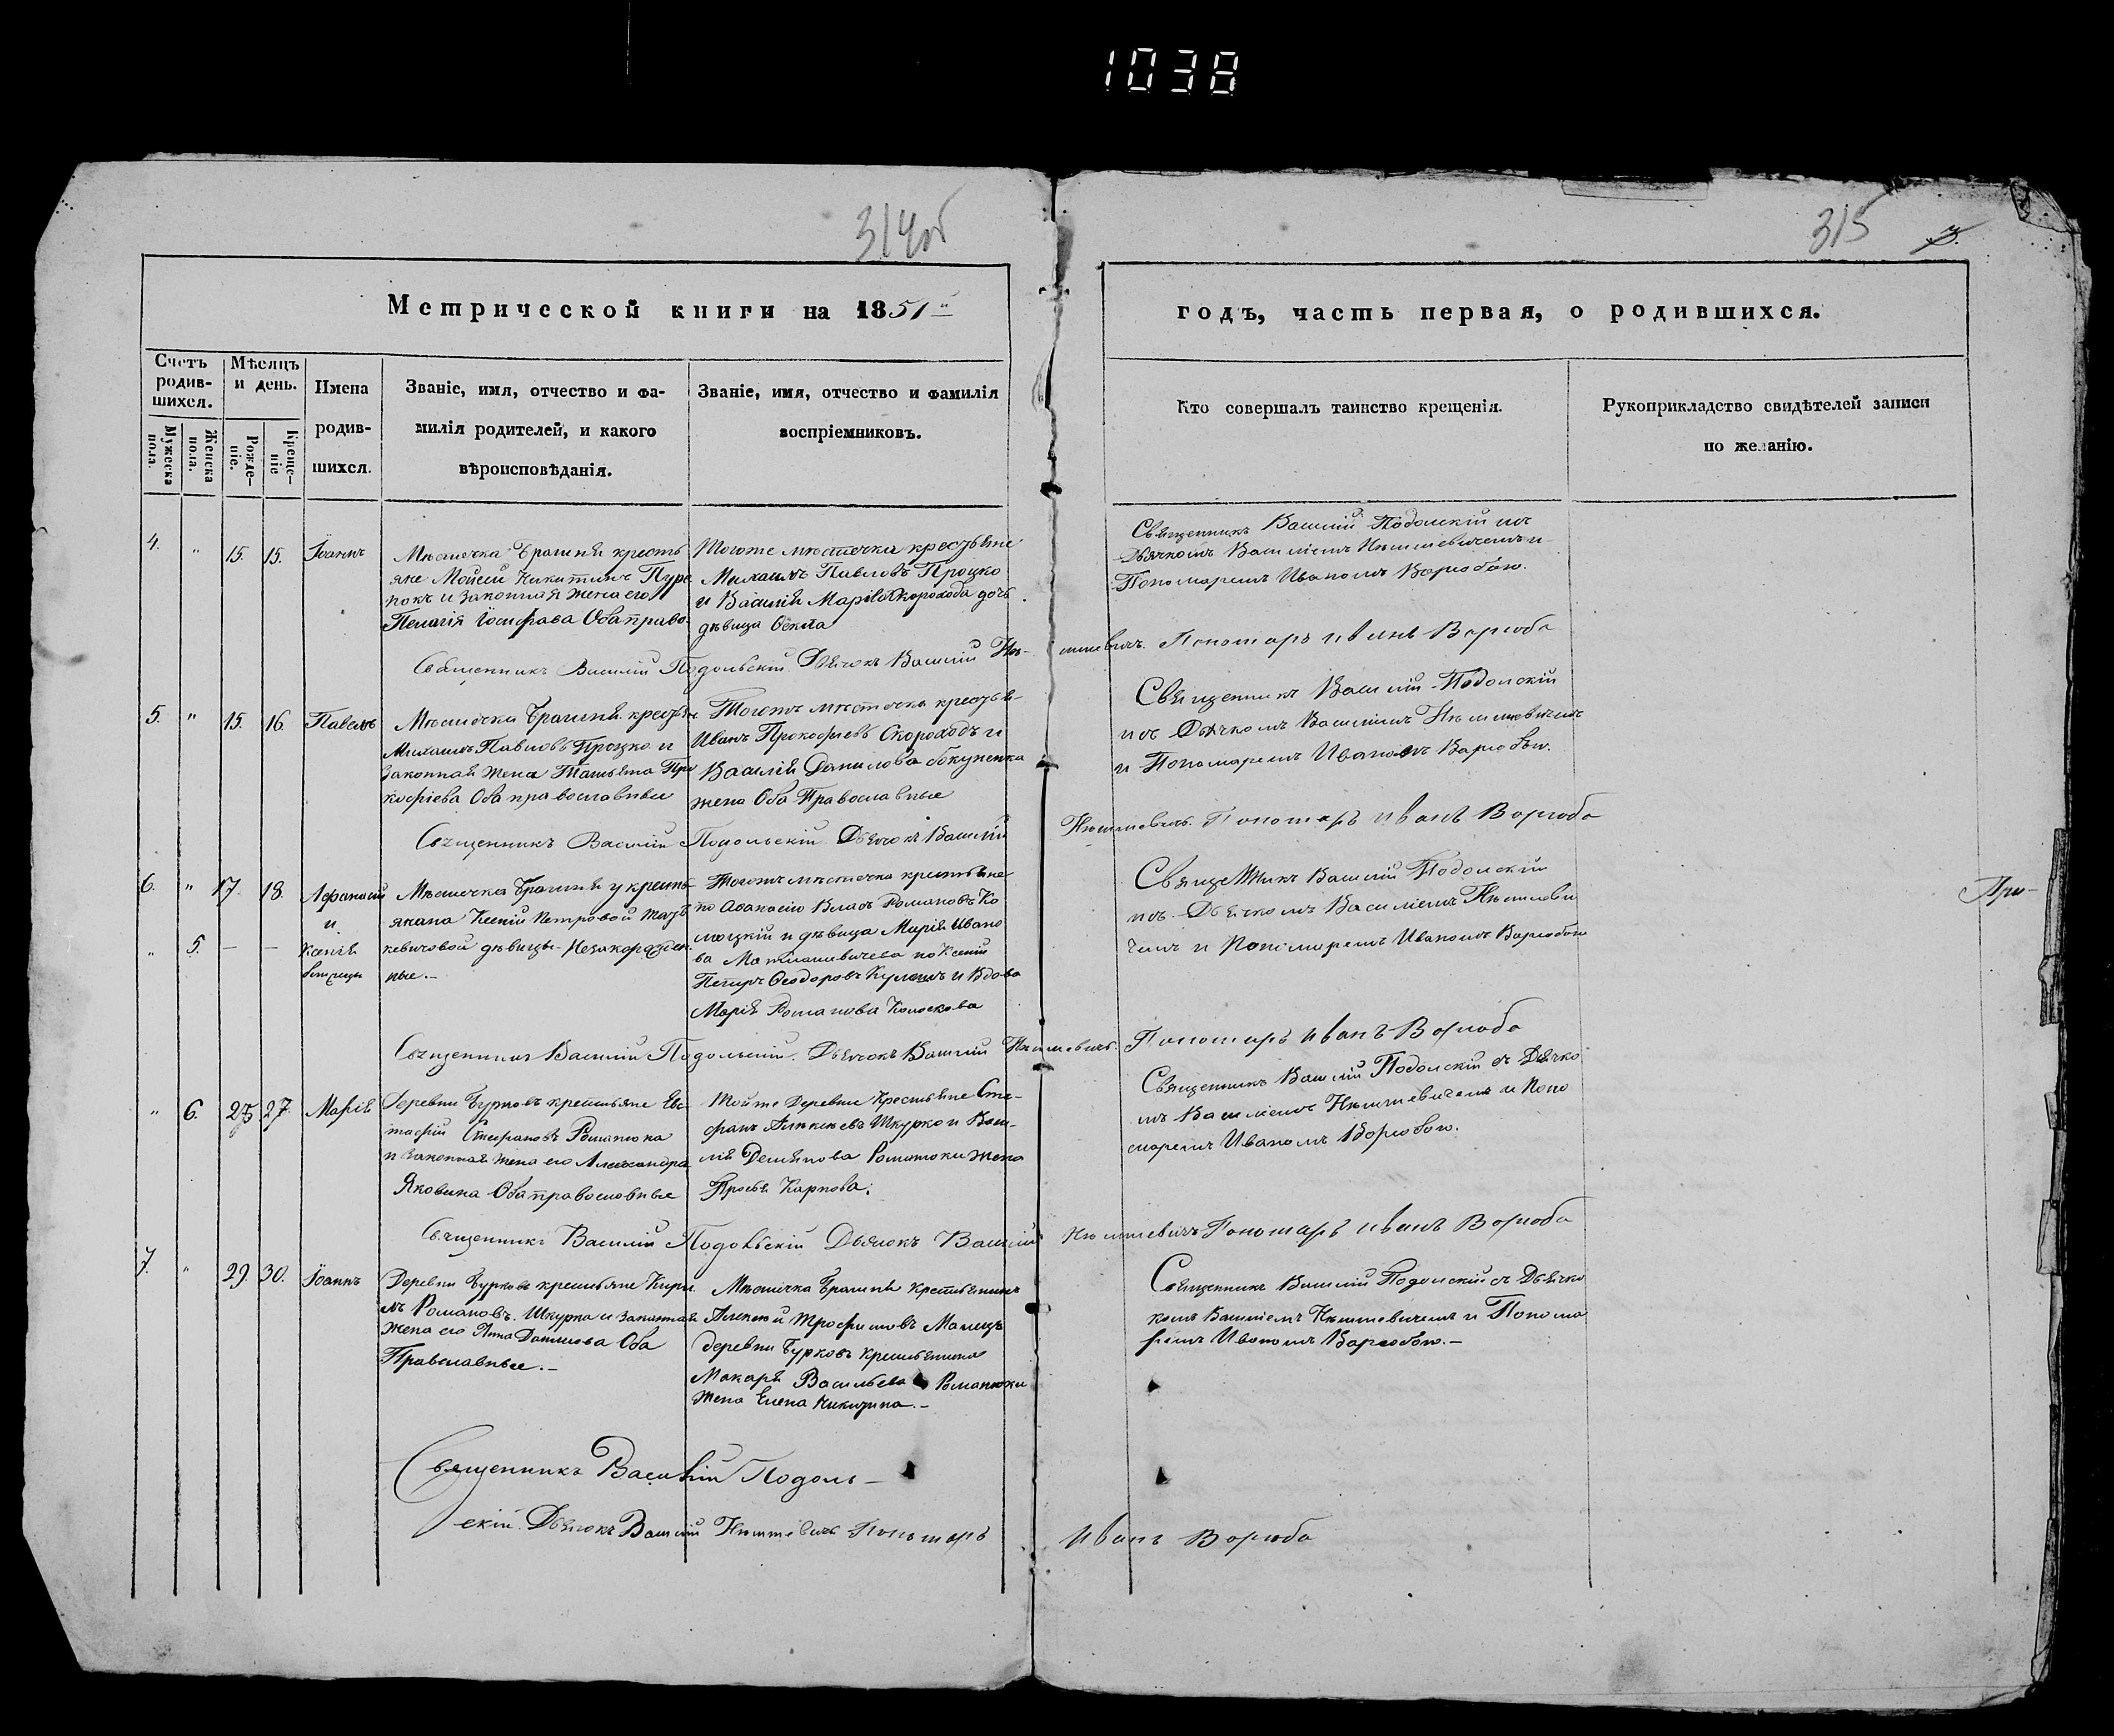 1038
314об
315
3.
Метрической книги на 1851й
годъ, часть первая, о родившихся.
Счетъ родив-шихся.
Мужеска пола.
Женска пола.
Мѣсяцъ и день.
Рожде-ніе.
Креще-ніе
Имена родив-шихся.
Званіе, имя, отчество и фа-
милія родителей, и какого
вѣроисповѣданія.
Званіе, имя, отчество и фамилія
воспріемниковъ.
Кто совершалъ таинство крещенія.
Рукоприкладство свидѣтелей записи
по желанію.
4. " 15. 15. Іоаннъ
Мѣстечка Брашня кресть
яне Мойсей Никитинъ
и законная жена его
Пелагія Іосифова Оба право.
Тогоже мѣстечка крестьяне
Михаилъ Павловъ Процко
и Василія Скорохода дочь
дѣвица Ѳекла
Священникъ Василій Подолскій изъ
Дьячкомъ Василіемъ и
Пономаремъ Иваномъ
Священникъ Василій Подольскій Дьячокъ Василій
Пономаръ Иванъ
5. " 15. 16. Павелъ
Мѣстечка Брашня крестьяне
Михаилъ Павловъ Процко и
законная жена Татьяна Про
кофіева Оба православные
Тогожъ мѣстечка крестья-
Иванъ Прокофьевъ Скороходъ и
Василія Данилова
жена Оба Православные
Священникъ Василій Подолскій
изъ Дьячкомъ Василіемъ
и Пономаремъ Иваномъ
Священникъ Василій Подольскій Дьячокъ Василій
Пономаръ Иванъ
6. " 17. 18. Афанасій
и
" 5. — — Ксенія
близнецы
Мѣстечка Брашня у кресть
янки Ксеніи Петровой
дѣвицы незаконорожден
ные.—
Тогожъ мѣстечка крестьяне
по Афанасію Власъ Романовъ
и дѣвица Марія Ивано
ва по Ксеніи
Петръ Ѳеодоровъ и Вдова
Марія Романова
Священникъ Василій Подолскій
изъ Дьячкомъ Василіемъ
и Пономаремъ Иваномъ
При-
Священникъ Василій Подольскій. Дьячокъ Василій
Пономаръ Иванъ
" 6. 25 27. Марія
Деревни Бурковъ крестьяне Евс
тафій Стефановъ Романюка
и законная жена его Александра
Яковина Оба православные
Тойже Деревни Крестьяне Сте-
фанъ Алексѣевъ Шкурко и Васи-
лія Демьянова Романюки жена
Карпова.
Священникъ Василій Подолскій съ Дьячко
мъ Василіемъ и Поно
маремъ Иваномъ
Священникъ Василій Подольскій Дьячокъ Василій
Пономаръ Иванъ
7. " 29. 30. Іоаннъ
Деревни Бурковъ крестьяне Кири
лъ Романовъ Шкурка и законная
жена его Анна Данилова Оба
Православные.—
Мѣстечка Брашня Крестьянинъ
Алексѣй Трофимовъ
деревни Бурковъ крестьянина
Макарія Васильева Романюки
жена Елена Никитина.—
Священникъ Василій Подолскій съ Дьячко
комъ Василіемъ и Понома
ремъ Иваномъ
Священникъ Василій Подоль-
скій. Дьячокъ Василій Пономаръ
Иванъ